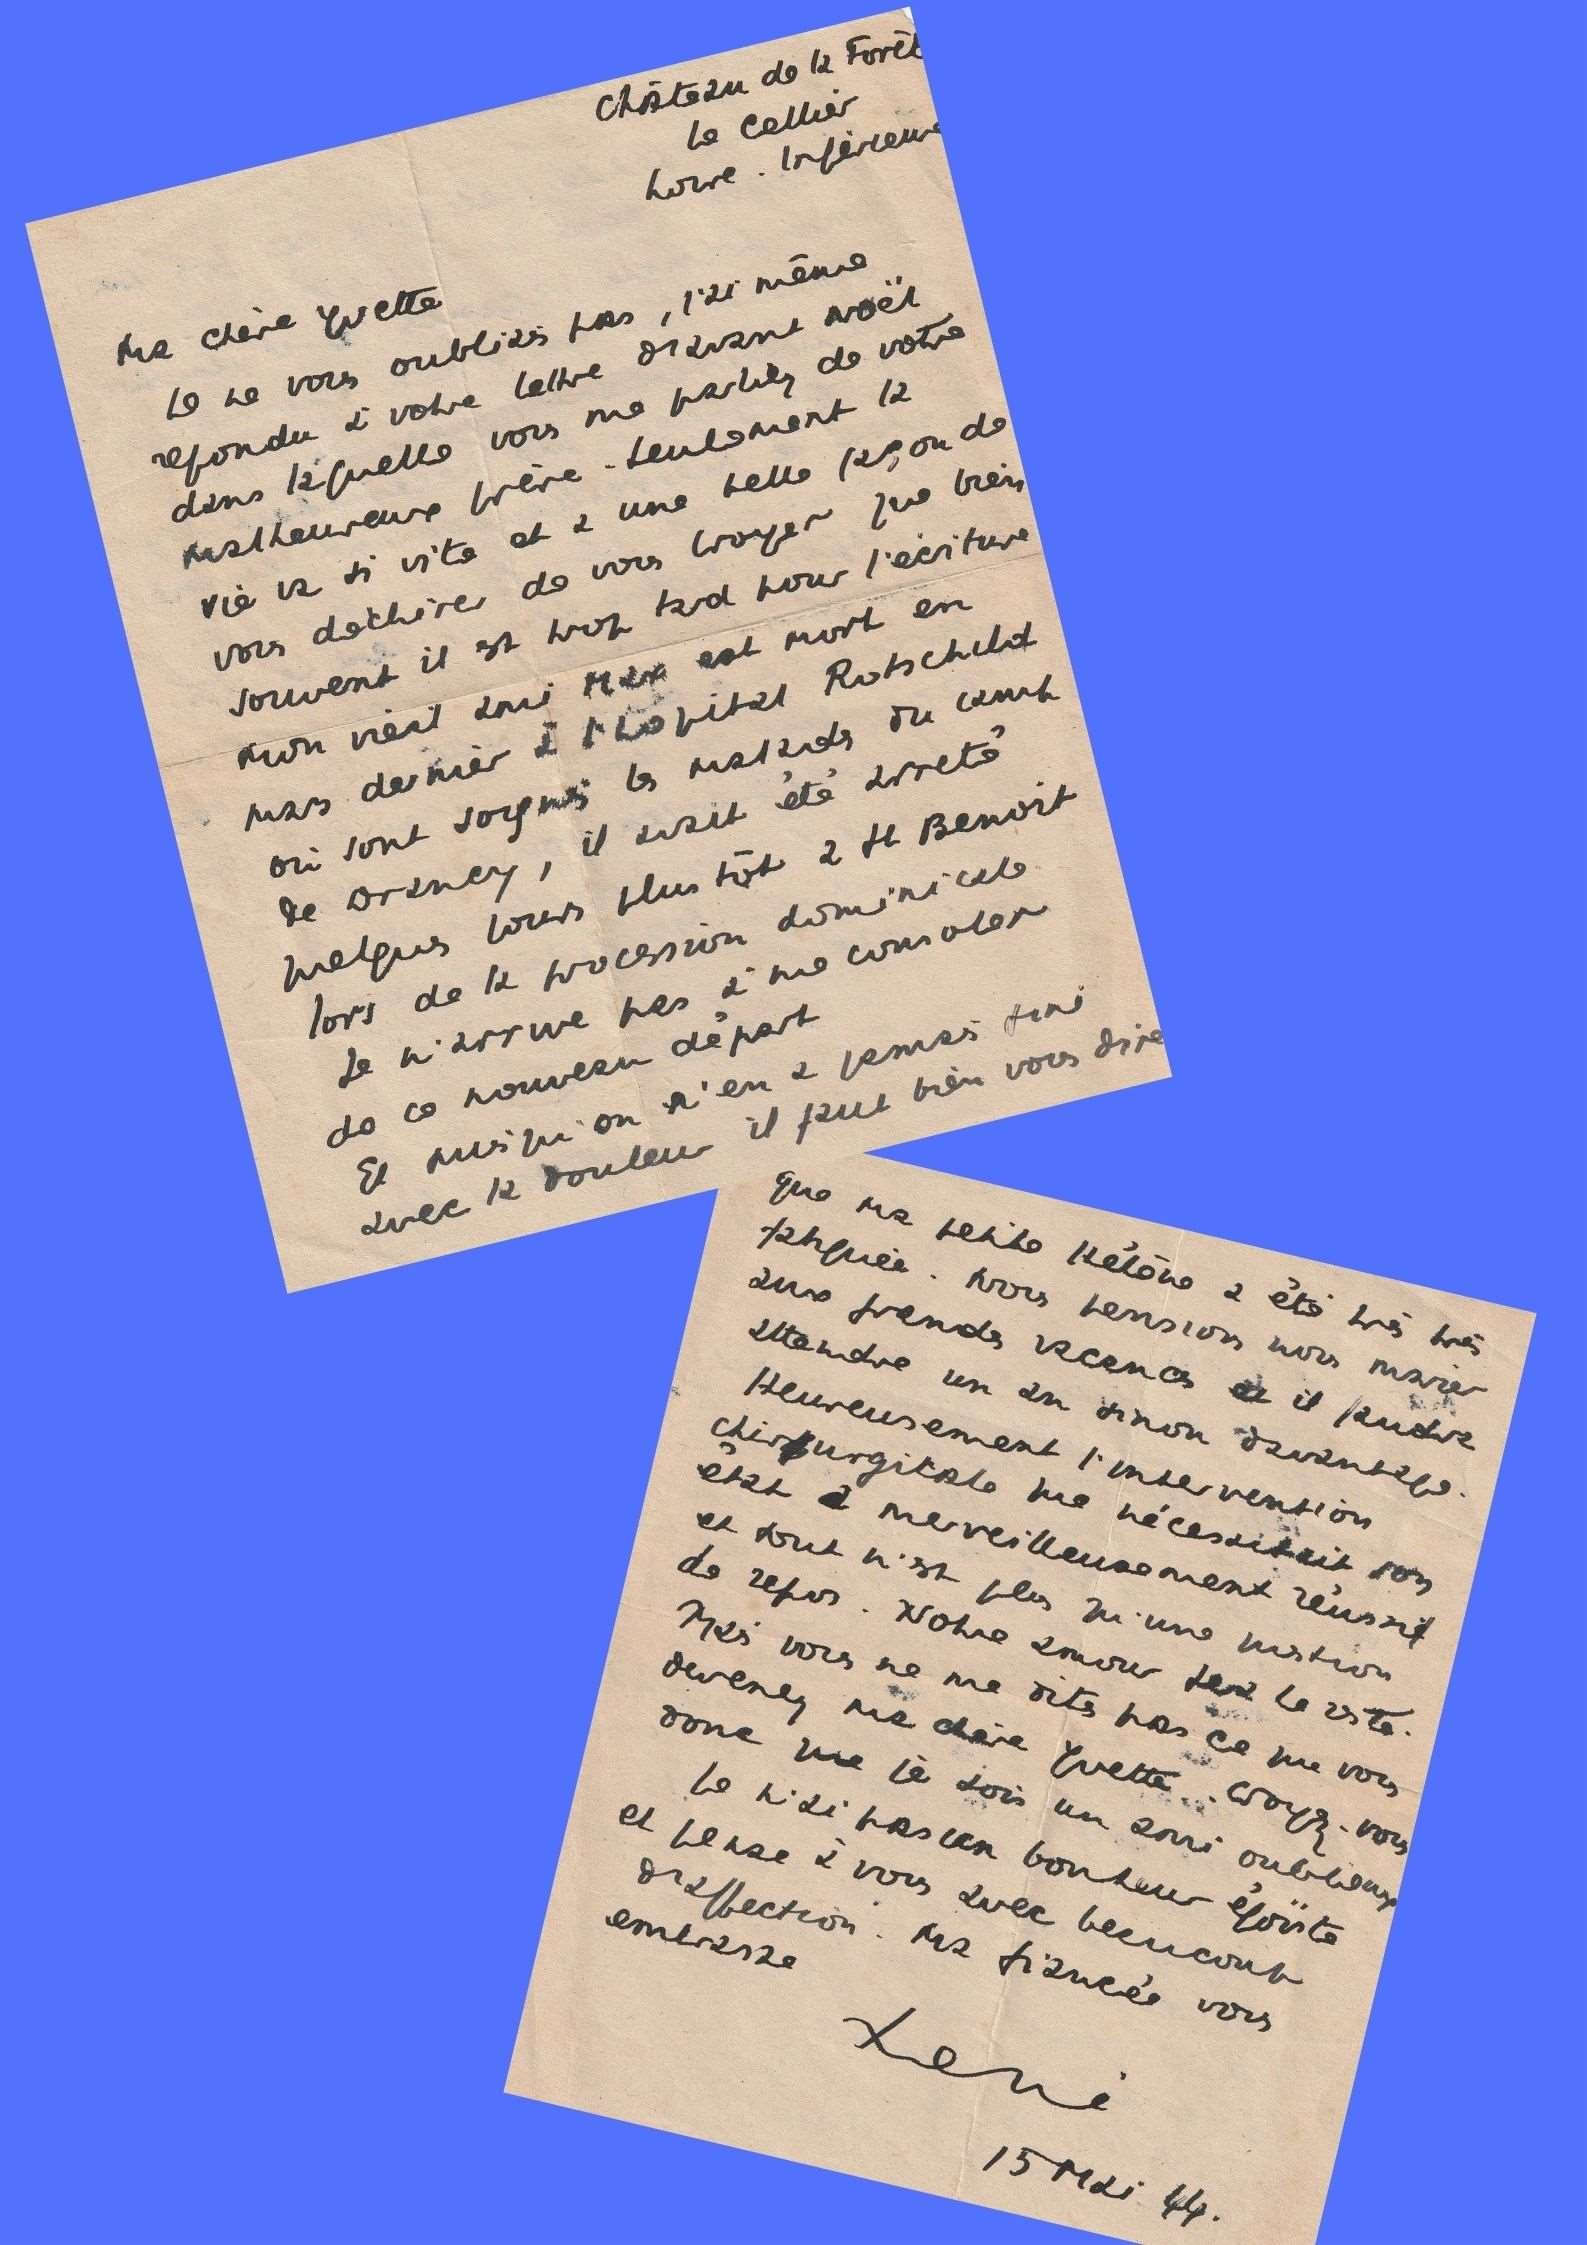 Château de la Forêt
Le Cellier
Loire. Inférieure
Ma chère Yvette
Je ne vous oubliais pas, j'ai même
repondu à votre lettre d'avant Noël
dans laquelle vous me parliez de votre
malheureux frère. Seulement la
vie va si vite et a une telle façon de
vous déchirer de vous broyer que bien
souvent il est trop tard pour l'écriture
Mon vieil ami Max est mort en
mars dernier à l'hopital Rotschild
où sont soignés les malades du camp
de Drancy, il avait été arreté
quelques jours plus tôt à St Benoit
lors de la procession dominicale
Je n'arrive pas à me consoler
de ce nouveau départ
Et puisqu'on n'en a jamais fini
avec la douleur il faut bien vous dire
que ma petite Hélène a été très très
fatiguée. Nous pensions nous marier
aux grandes vacances et il faudra
attendre un an sinon davantage.
Heureusement l'intervention
chirurgicale que nécessitait son
état a merveilleusement réussi
et tout n'est plus qu'une question
de repos. Notre amour fera le reste.
Mais vous ne me dites pas ce que vous
devenez ma chère Yvette. Croyez-vous
donc que je sois un ami oublieux
Je n'ai pas un bonheur égoïste
et pense à vous avec beaucoup
d'affection. Ma fiancée vous
embrasse
René
15 Mai 44.